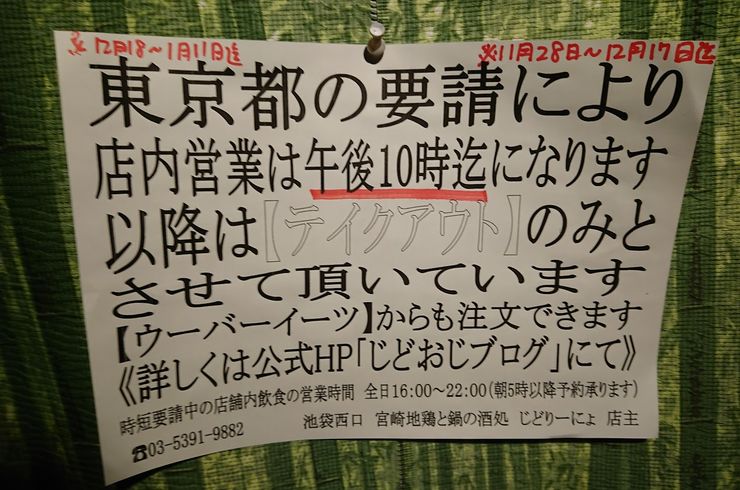 ※12月18~1月11日迄
※11月28日~12月17日迄
東京都の要請により
店内営業は午後10時迄になります
以降は【テイクアウト】のみと
させて頂いています
【ウーバーイーツ】からも注文できます
《詳しくは公式HP「じどおじブログ」にて》
時短要請中の店舗内飲食の営業時間 全日16:00~22:00(朝5時以降予約承ります)
☎03-5391-9882
池袋西口 宮崎地鶏と鍋の酒処 じどりーにょ 店主